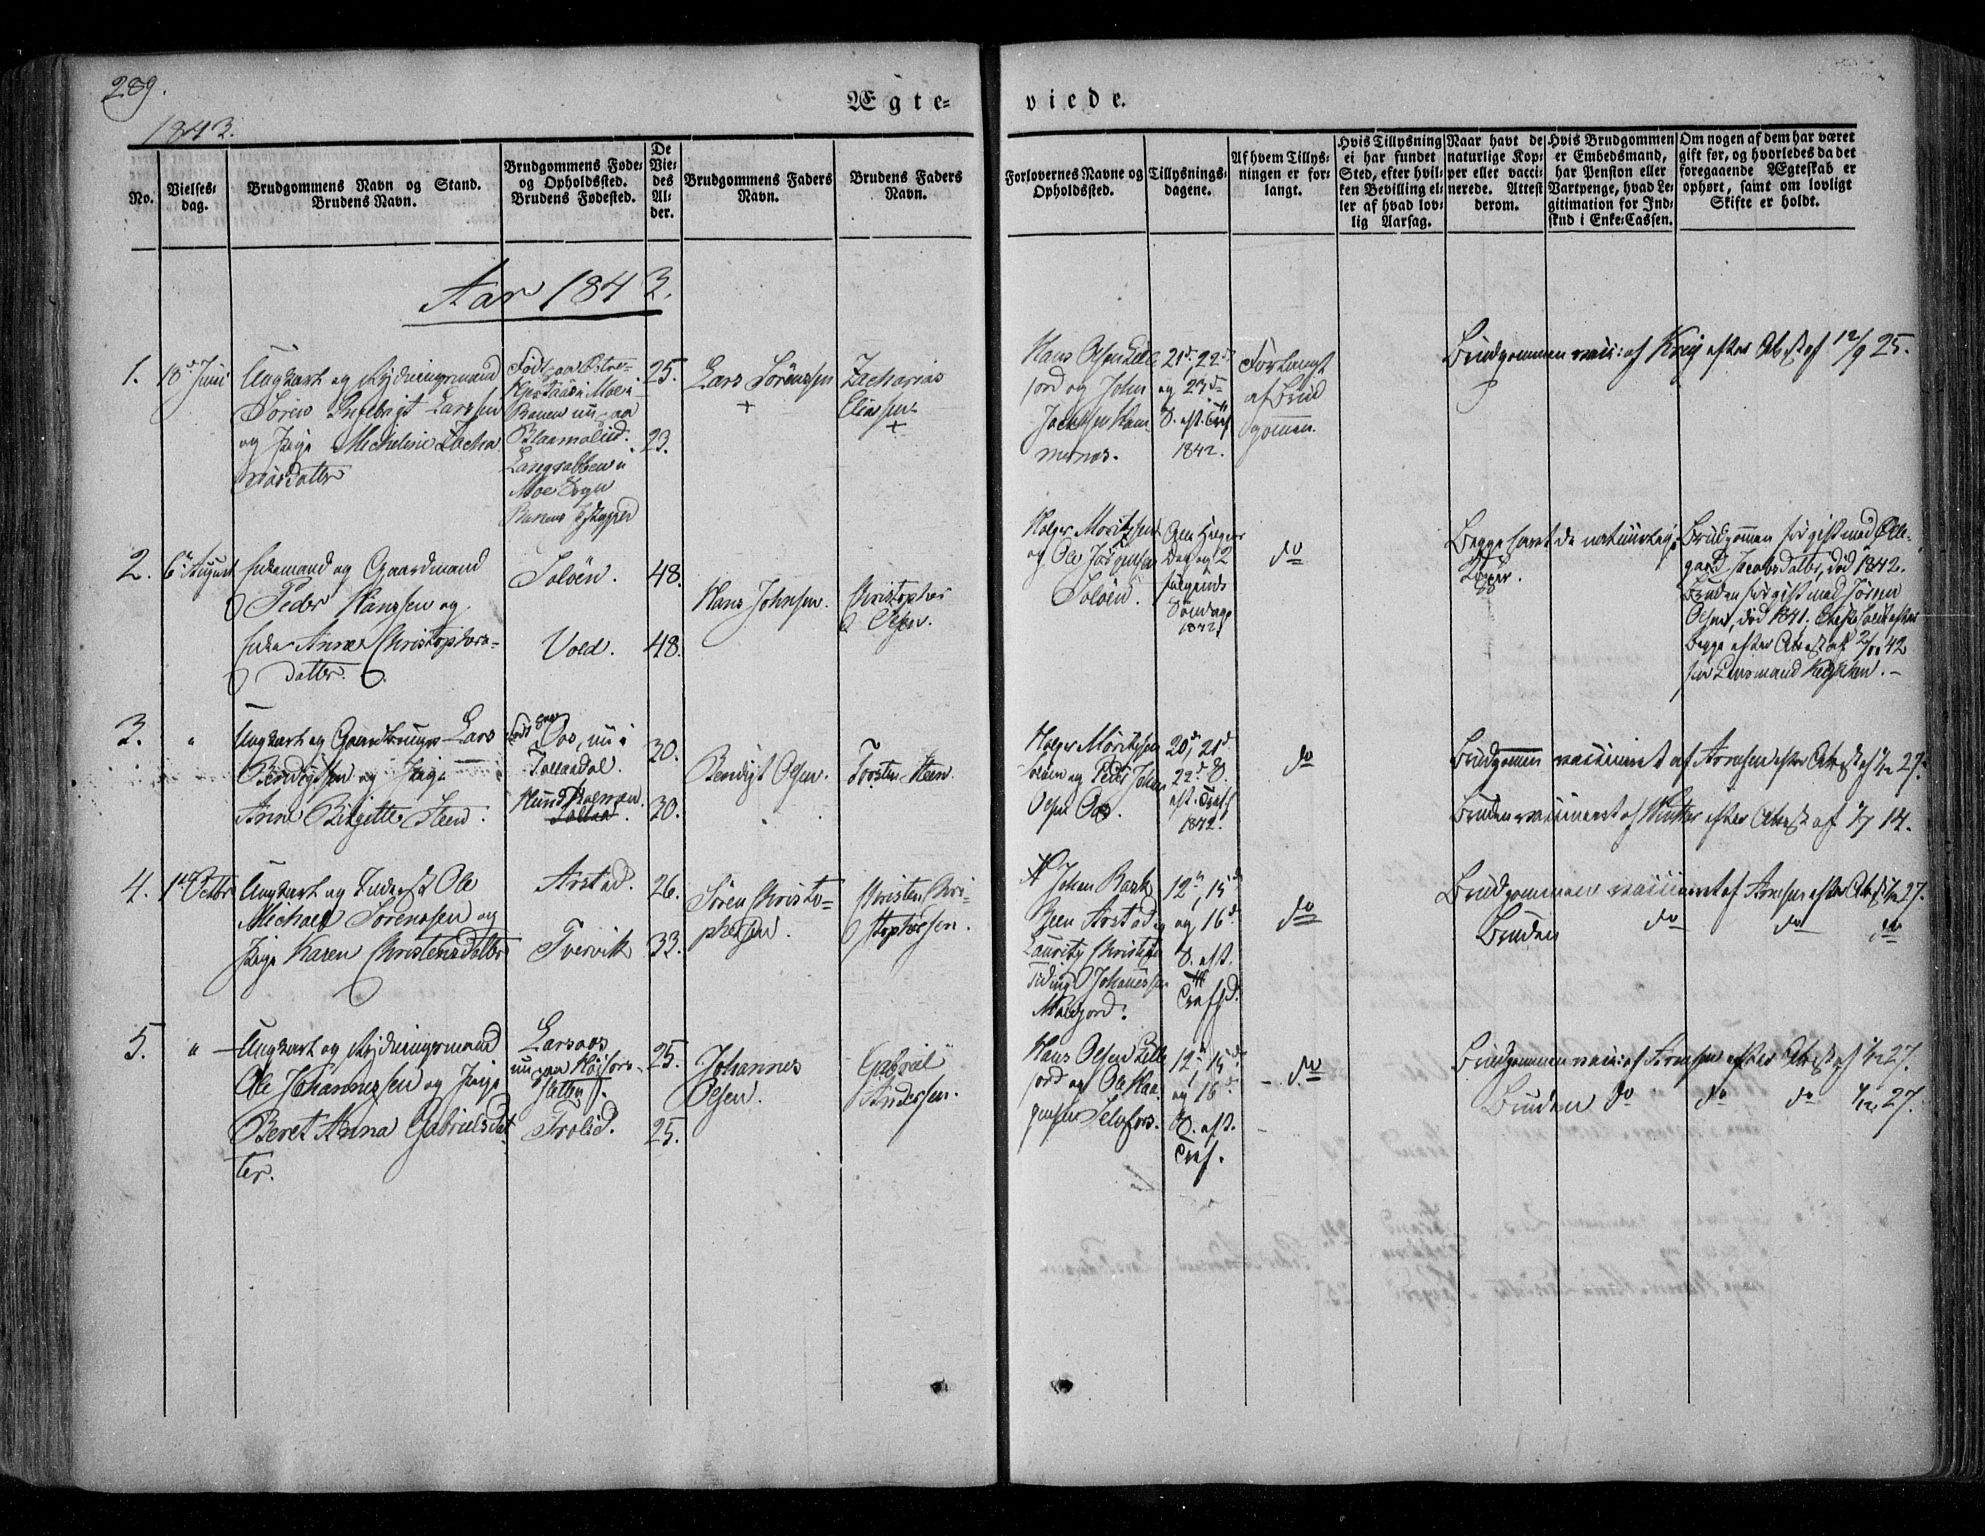 289.
Ægte=
viede.
1843.
No.
Vielses=
dag.
Brudgommens Navn og Stand.
Brudens Navn.
Brudgommens Føde=
og Opholdssted.
Brudens Fødested.
De
Vie=
des
Al=
der.
Brudgommens Faders
Navn.
Brudens Faders
Navn.
Forlovernes Navne og
Opholdssted.
Tillysnings=
dagene.
Af hvem Tillys=
ningen er for=
langt.
Hvis Tillysning
ei har fundet
Sted, efter hvil=
ken Bevilling el=
ler af hvad lov=
lig Aarsag.
Naar havt de
naturlige Kop=
per eller vacci=
nerede. Attest
derom.
Hvis Brudgommen
er Embedsmand,
har Pension eller
Vartpenge, hvad Le=
gitimation for Ind=
skud i Enke=Cassen.
Om nogen af dem har været
gift før, og hvorledes da det
foregaaende Ægteskab er
ophørt, samt om lovligt
Skifte er holdt.
Aar 1843.
1.
18d Juni
Ungkarl og Rydningsmand
Søren Ingebrigt Larssen
og Pige Micheline Zacha
riasdatter
Født paa
Moe i
Ranen nu paa
Blaamolid.
Langsatten i
Moe Sogn
25.
23.
Lars Sørenssen
+
Zacharias
Eliesen
+
Hans Olsen Leli
fjord og John
1842.
21d, 22d
og 23d
S. eft. Tref
1842.
Forlangt
af Brud
gomen.
Brudgommen vacc: af Krog efter Att. af 12/9 25.
2.
6te August
Enkemand og Gaardmand
Peder Hanssen og
Enke Anne Christophers=
datter.
Soløen.
Vold.
48.
48.
Hans Johnsen.
Christopher
Olsen.
Holger Moritzsen
og Ole Jørgensen
Soløen.
Dag og 2
følgende
Søndage
1842
do
Begge havt de naturlige
Brudgomen før gift med Elle=
gard Jacobsdatter, død 1842.
Bruden før gift med Søren
Olsen, død 1841.
begge efter Attest af 2/11 42
fra Lensmand
3.
"
Ungkarl og Gaardbruger Lars
Bendigtsen og Pige
Anne Birgitte Steen.
Født paa
Oos, nu i
Tollaadal.
Hundholmen.
30.
30.
Bendigt Olsen.
Torsten Steen.
Holger Moritzsen
Soløen og Peder Johan
Olsen Oos.
20d, 21d
22d S.
eft. Tref.
1842.
do
Brudgomen vaccineret af Arnesen efter Attest af 1/12 27.
Bruden vaccineret af Winther efter Attest af 1/7 14.
4.
1ste Octbr
Ungkarl og Inderst Ole
Michael Sørenssen og
Pige Karen Christensdatter
Arstad.
Tvervik
26.
33.
Søren Christo=
phersen.
Christen Chri=
stophersen.
Johan Rask
Been Arstad og
Lauritz Christian
Tiding Johannessen
12te, 15d
og, 16d
S. eft.
Tref.
do
Brudgommen vaccineret af Arnesen efter Attest 1/12 27.
Bruden do do do
5.
"
Ungkarl og Rydningsmand
Ole Johannessen og Pige
Beret Anna Gabrielsdat
ter.
Larsoos
nu paa Høifors=
sletten.
Trolid.
25.
25.
Johannes
Olsen.
Gabriel
Anderssen.
Hans Olsen Leli
fjord og Ole Haa=
gensen Selufors.
12te, 15d
og 16d
S. eft.
Tref.
do
Brudgommen vacc: af Arnesen efter Attest af 1/12 27.
Bruden do do do 1/12 27.